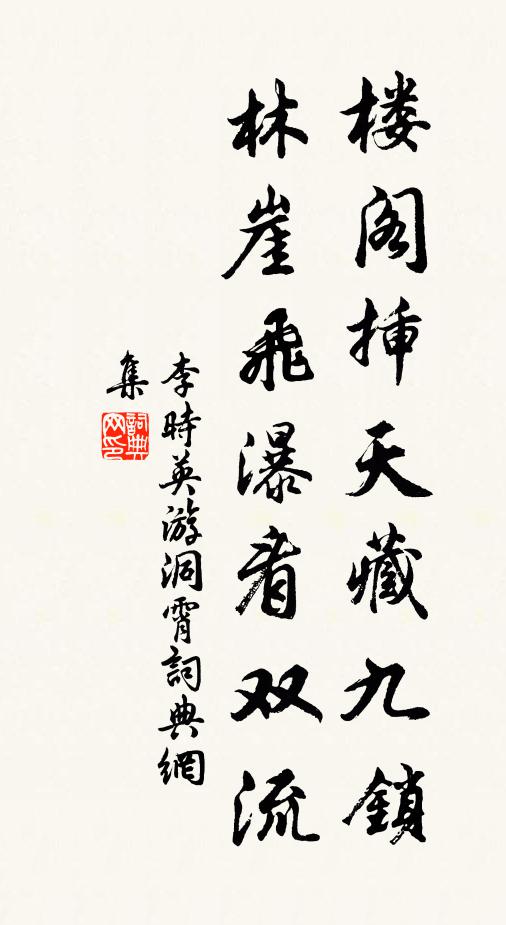 楼阁揷天藏九鎖
林崖飛瀑看双流
李時英游洞霄詞典網
集
詞典网印